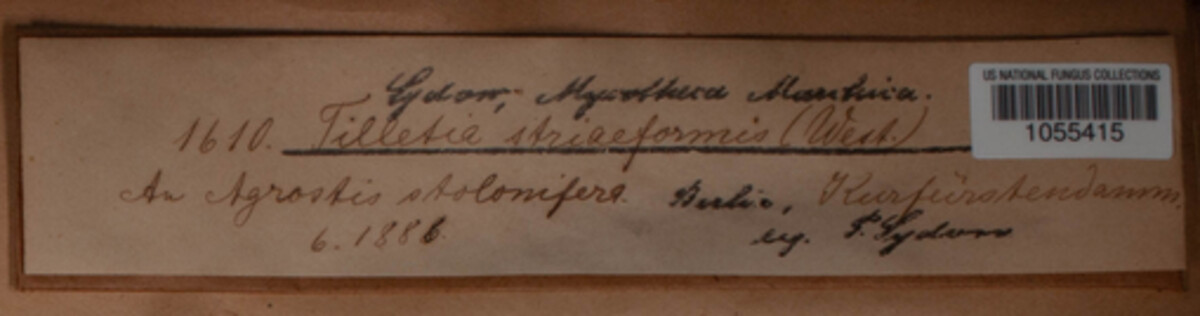 Sydow, Mycotheca Marchica.
US NATIONAL FUNGUS COLLECTIONS
1055415
1610. Tilletia striaeformis (West.)
An Agrostis stolonifera. Berlin, Kurfürstendamm.
6. 1886. leg. P. Sydow